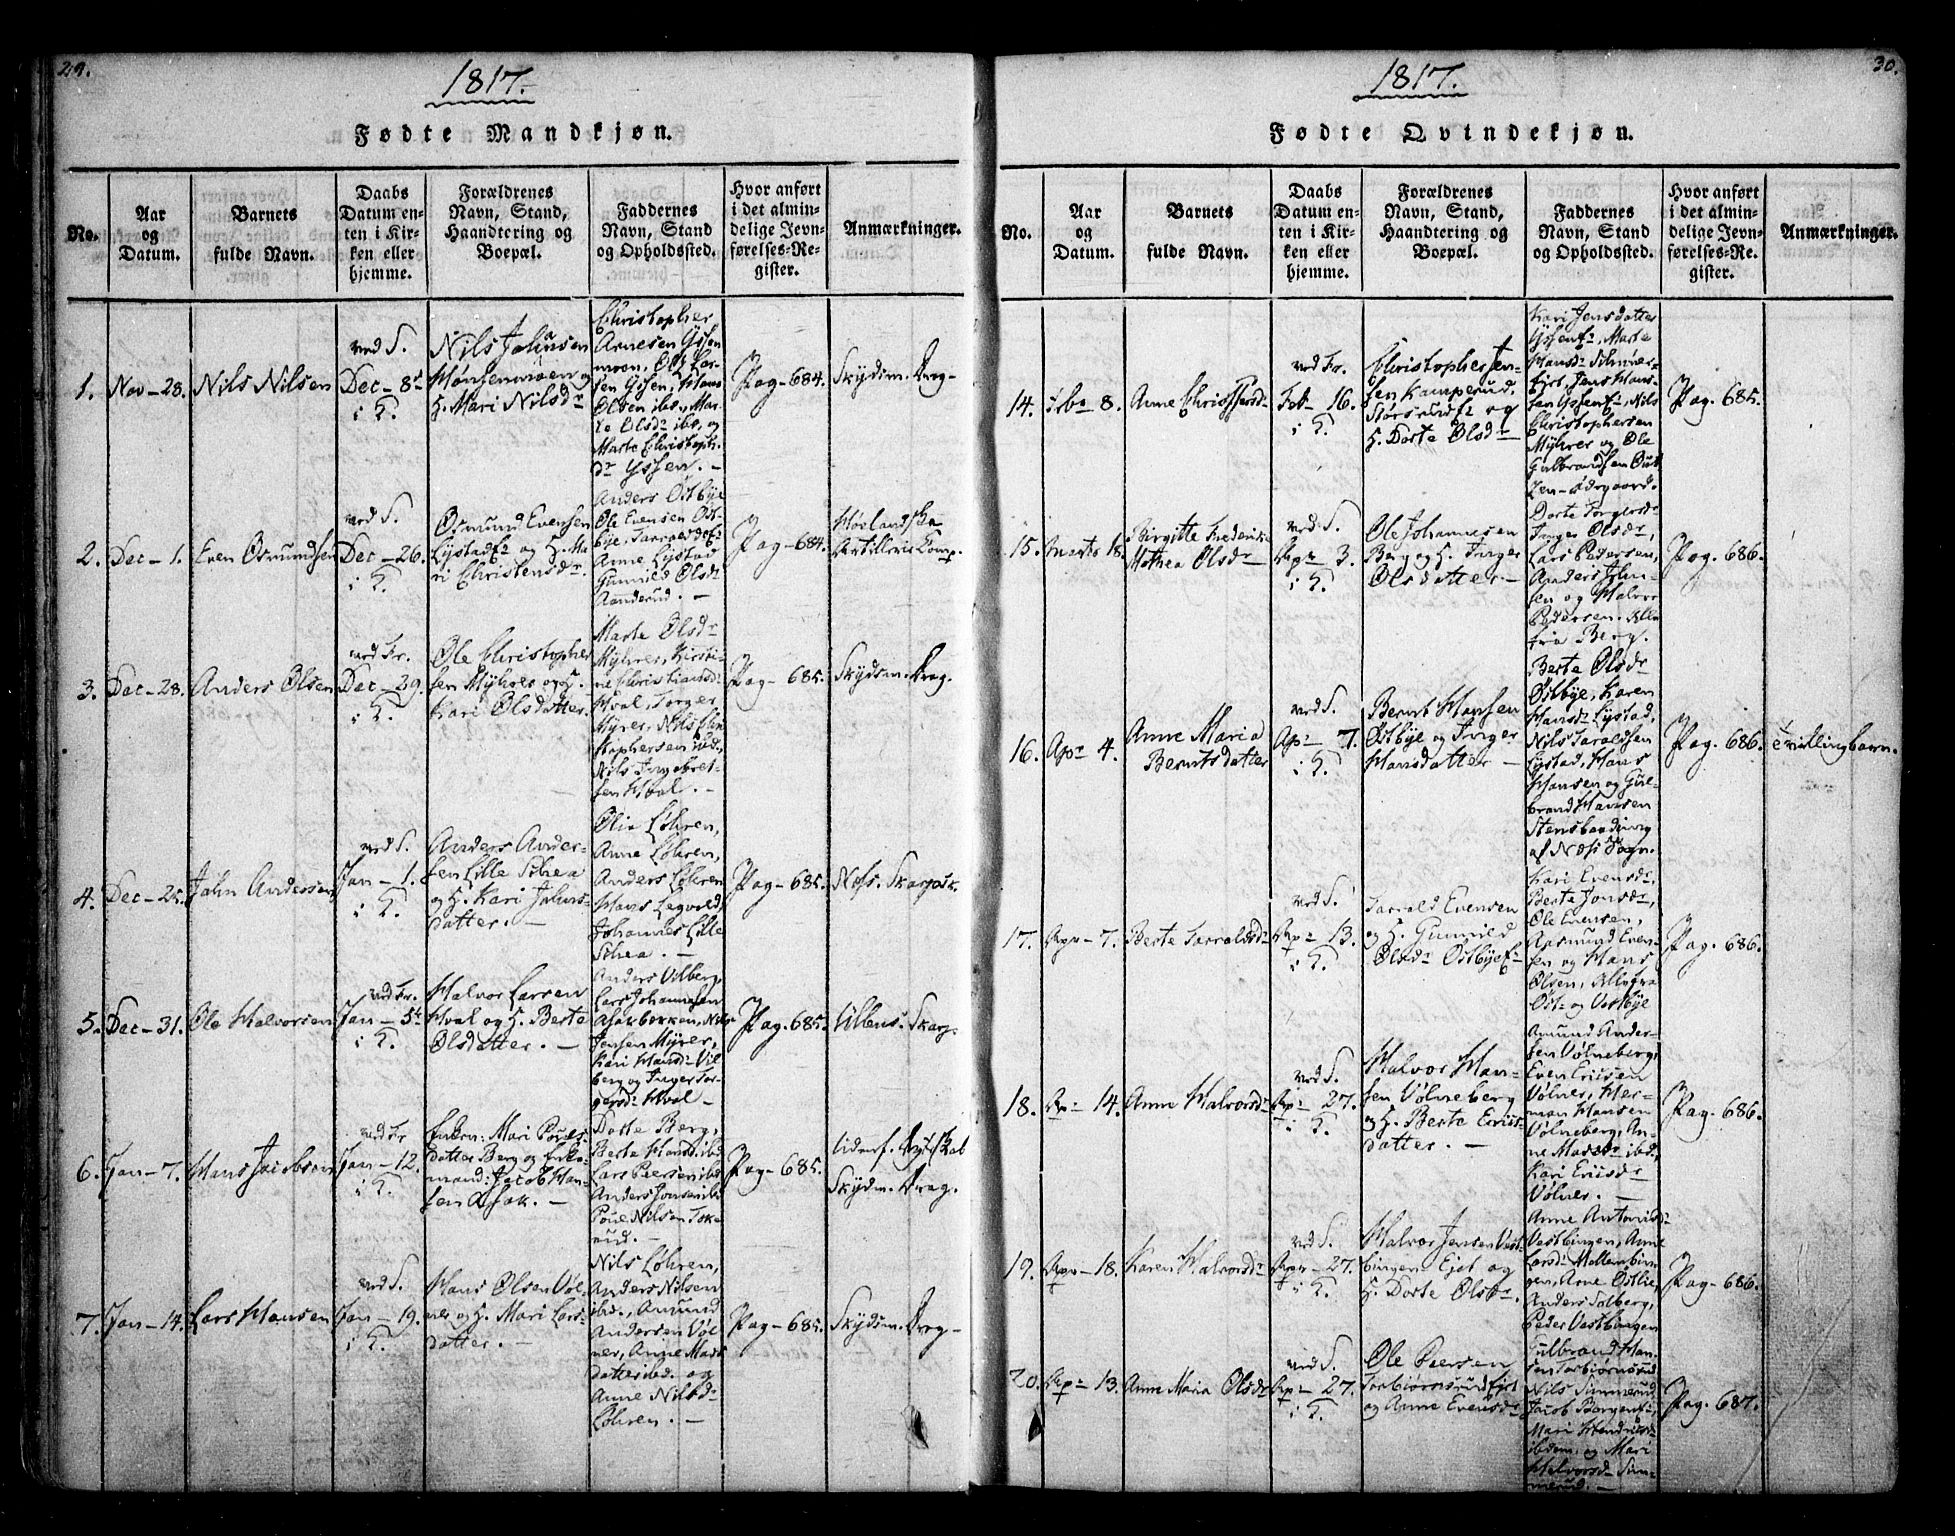 29.
1817.
Fødte Mandkjøn.
No.
Aar
og
Datum.
Barnets
fulde Navn.
Daabs
Datum en-
ten i Kir-
ken eller
hjemme.
Forældrenes
Navn, Stand,
Haandtering og
Boepæl.
Faddernes
Navn, Stand
og Opholdssted.
Hvor anført
i det almin-
delige Jevn-
førelses-Re-
gister.
Anmærkninger.
1.
Nov - 28.
Nils Nilsen
ved S.
Dec - 8
i K.
Nils Johnsen
Mønsenmoen og
H. Mari Nilsdr
Christopher
Arnesen Yssen
moen, Ole Lar-
sen Yssen, Hans
Olsen ibd., Mar-
te Olsdr ibd, og
Marte Christoph.
dr Yssen. -
Pag - 684.
Skydsm. Drag -
2.
Dec - 1.
Even Osmundsen
ved S.
Dec - 26.
i K.
Osmund Evensen
Lystad og H. Ma-
ri Christensdr.
Anders Østbye
Ole Evensen Øst-
bye,
Anne Lystad
Gunnild Olsdr
Aanderud. -
Pag - 684.
Artillerie Comp.
3.
Dec - 28.
Anders Olsen
ved Fr.
Dec - 29.
i K.
Ole Christopher
sen Myhrer og H.
Kari Olsdatter.
Marte Olsdr
Myhrer, Kirsti-
ne Christiansd
Hval, Torger
Myrer, Nils Chri
stophersen ibd.,
Nils Ingebret-
sen Hval. -
Pag - 685.
Skydsm. Drag.
4.
Dec - 25.
John Andersen
ved S.
Jan - 1.
i K.
Anders Ander-
sen Lille Schea
og H. Kari Johns-
datter. -
Olia Løhren,
Anne Løhren,
Anders Løhren
Hans Legvold,
Johannes Lille
Schea. -
Pag - 685.
Næss. Skarpsk.
5.
Dec - 31.
Ole Halvorsen
ved Fr.
Jan - 5
i K.
Halvor Larsen
Hval og H. Berte
Olsdatter. -
Anders Vilberg,
Lars Johannesen
Asakbekken, Nils
Jensen Myrer,
Kari Hansdr Vil
berg og Inger Tor-
gersdr Hval -
Pag - 685.
Ullens. Skarp.
6.
Jan - 7.
Hans Jacobsen
ved Fr
Jan - 12.
i K.
Enken: Mari Pouls-
datter Berg og Enke-
mand: Jacob Han-
sen Asak. -
Dorte Berg,
Berte Hansd ibd
Lars Peersen ibd
Anders Jonsen ibd
Poul Nilsen Tok-
erud. -
Pag - 685.
Skydm. Drag.
7.
Jan - 14.
Lars Hansen
ved S.
Jan - 19.
i K.
Hans Olsen Vøl-
ner og H. Mari Lars-
datter. -
Nils Løhren,
Anders Nilsen
ibd., Amund
Andersen Vøl-
ner, Anne Mads
datter ibd. og
Anne Nilsdr
Løhren. -
Pag - 685.
Skydsm. Drag -
30.
1817.
Fødte Qvindekjøn.
No.
Aar
og
Datum.
Barnets
fulde Navn.
Daabs
Datum en-
ten i Kir-
ken eller
hjemme.
Forældrenes
Navn, Stand,
Haandtering og
Boepæl.
Faddernes
Navn, Stand
og Opholdssted.
Hvor anført
i det almin-
delige Jevn-
førelses-Re-
gister.
Anmærkninger.
14.
8.
Anne
ved Fr.
Feb - 16.
i K.
Christopher Jen-
sen Kamperud,
og
H. Dorte Olsdr
Kari Jensdatter
Marte
Hansdr
Jens Han-
sen Nils
Christophersen
Myhrer og Ole
Gulbrandsen
Pag. 685.
15.
Marts 18.
Birgitte Frederik
Mathea Olsdr
ved S.
Apr 3.
i K.
Ole Johannesen
Berg og H. Inger
Olsdatter -
Dorte Torgersdr
Inger Olsdr,
Lars Pedersen,
Anders John-
sen og Halvor
Pedersen. Alle
fra Berg.
Pag. 686.
16.
Apr 4.
Anne Maria
Berntsdatter
ved S.
Apr 7.
i K.
Bernt Hansen
Østbye og Inger
Hansdatter -
Berte Olsdr
Østbye, Karen
Hansdr Lystad,
Nils Taraldsen
Lystad, Hans
Hansen og Gul-
brand Hansen
af Næss Sogn.
Pag. 686.
Tvillingbarn.
17.
Apr - 7.
Berte Tarraldsdr
ved S.
Apr 13.
i K.
Tarrald Evensen
og H. Gunnild
Olsdr Østbye
Kari Evensdr,
Berte Jonsdr,
Ole Evensen,
Aasmund Even-
sen og Hans
Olsen, Alle fra
Øst- og Vestbye
Pag. 686.
18.
Apr 14.
Anne Halvorsdr
ved S.
Apr 27.
i K.
Halvor Han-
sen Vølneberg
og H. Berte Erics
datter. -
Amund Ander-
sen Vølneberg,
Even Ericsen
Vølner, Her-
man Hansen
Vølneberg, An-
ne Madsdr ibd,
Kari Ericsdr
Vølner. -
Pag - 686.
19.
Apr - 18.
Karen Halvorsdr
ved S.
Apr - 27.
i K.
Halvor Jensen Vest-
bingen Ejet og
H. Dorte Olsdr.
Anne Antonisdr
Vestbingen, Anne
Larsdr Mellembin-
gen, Arne Østlie,
Anders Solberg,
Peder Vestbingen
Pag - 686.
20.
Apr 13.
Anne Maria Olsdr
ved S.
Apr 27.
i K.
Ole Peersen
Torbiørnsrud Ejet
og Anne Evensdr
Gulbrand Han-
sen Torbiørnsrud
Nils Simmerud
Jacob
Mari
ibdem. og Mari
Halvorsdr Sim-
merud. -
Pag. 687.